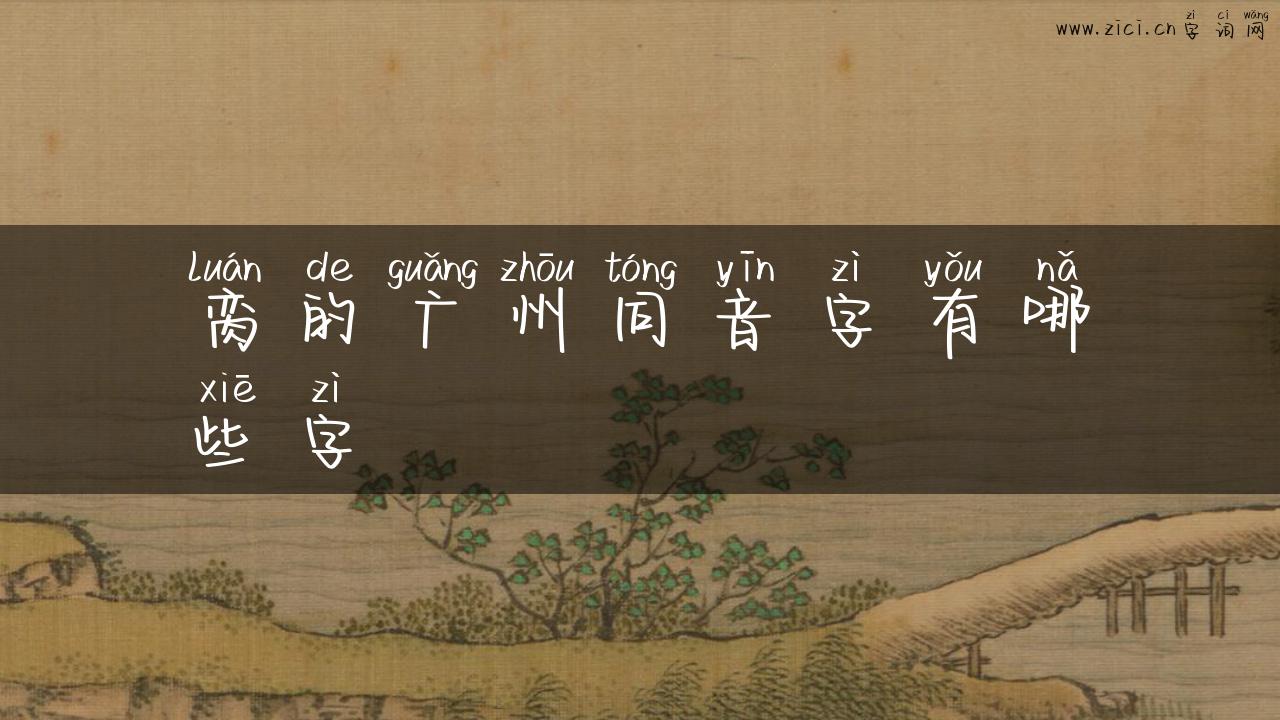 zì cí wǎng
www.zici.cn 字词网
luán de guǎng zhōu tóng yīn zì yǒu nǎ
脔的广州同音字有哪
xiē zì
些字